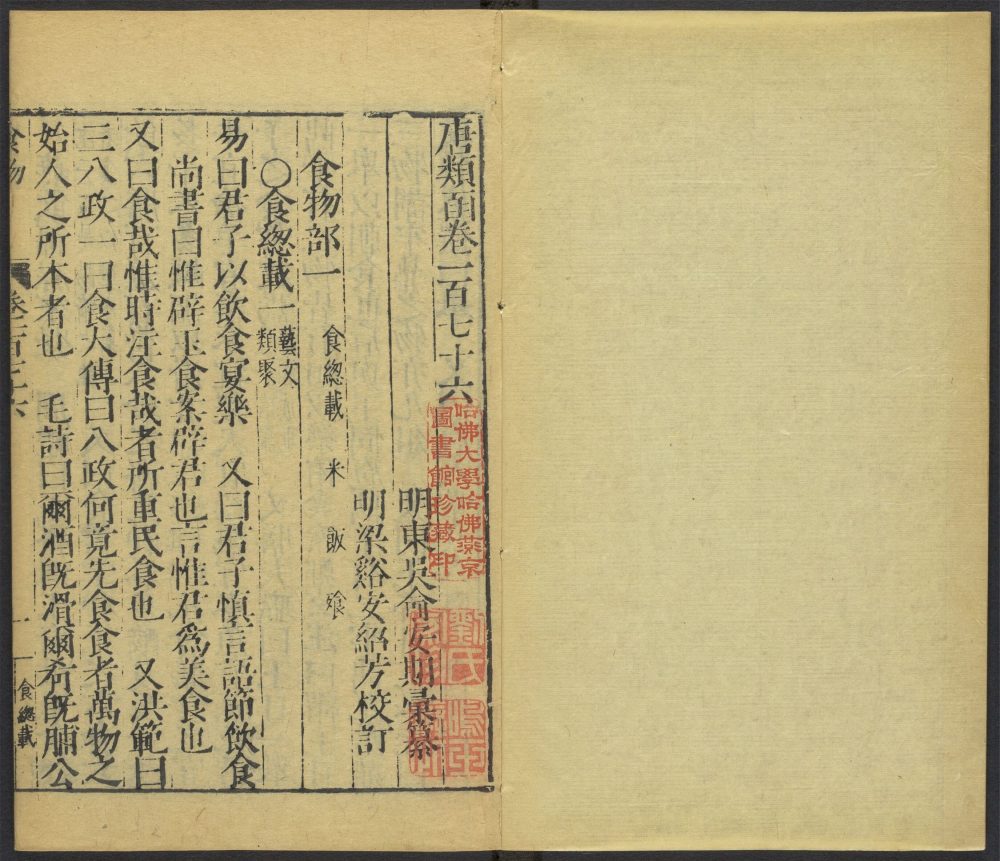 唐類函卷一百七十六
明東吳俞安期彙纂
明梁谿安紹芳校訂
食物部一 食總載 米 飯 飱
〇食總載一 藝文類聚
易曰君子以飲食宴樂 又曰君子慎言語節飲食
尚書曰惟辟玉食案辟君也言惟君爲美食也
又曰食哉惟時注食哉者所重民食也 又洪範曰
三八政一曰食大傳曰八政何竟先食食者萬物之
始人之所本者也 毛詩曰爾酒旣滑爾希旣脯公
食物
卷一百七十六
一
食總載
哈佛大學哈佛燕京
圖書館珍藏印